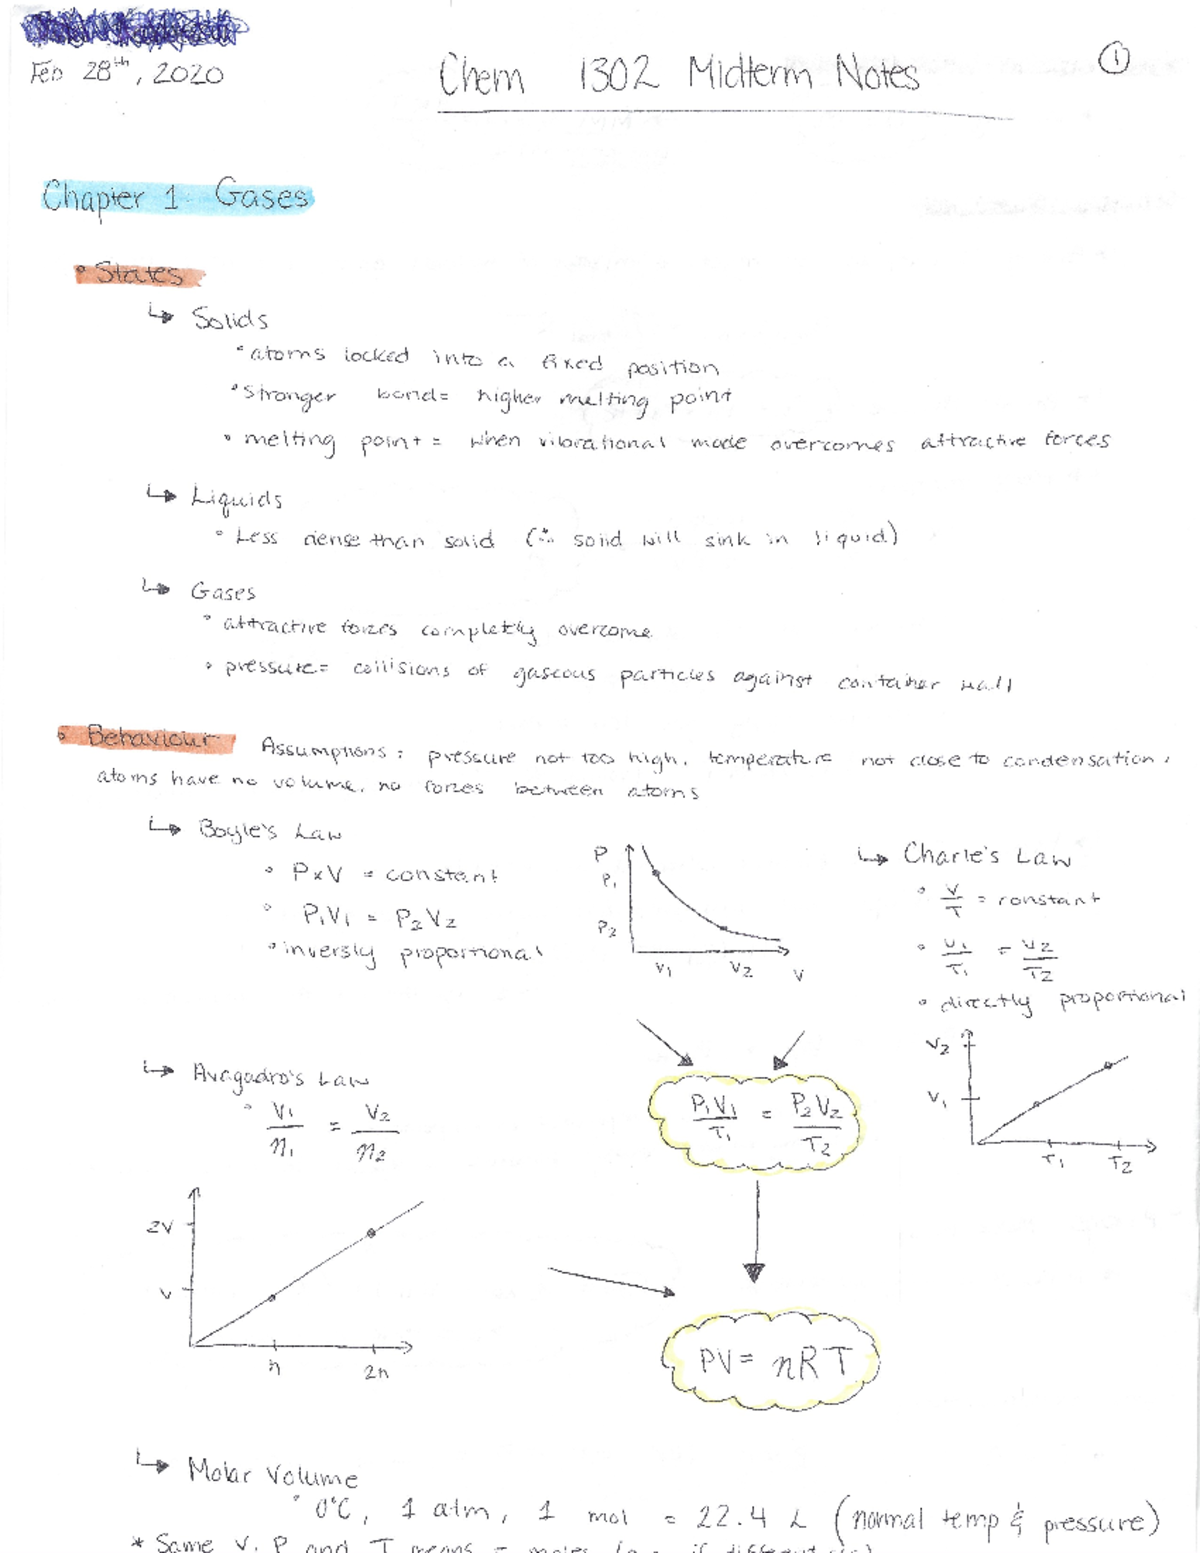 Feb 28th, 2020
Chem 1302 Midterm Notes
1
Chapter 1: Gases
• States
↳ Solids
• atoms locked into a fixed position
• stronger bond = higher melting point
• melting point = when vibrational mode overcomes attractive forces
↳ Liquids
• Less dense than solid (∴ solid will sink in liquid)
↳ Gases
• attractive forces completly overcome
• pressure = collisions of gaseous particles against container wall
• Behaviour Assumptions: pressure not too high, temperature not close to condensation,
atoms have no volume, no forces between atoms
↳ Boyle's Law
• P×V = constant
• P1V1 = P2V2
• inversly proportional
P
P1
P2
V1 V2 V
↳ Charle's Law
• V/T = constant
• V1/T1 = V2/T2
• directly proportional
V2
V1
T1 T2
P1V1/T1 = P2V2/T2
↳ Avagadro's Law
• V1/n1 = V2/n2
2V
V
n 2n
PV = nRT
↳ Molar Volume
• 0°C, 1 atm, 1 mol = 22.4 L (normal temp & pressure)
* Same V, P and T means = moles if different